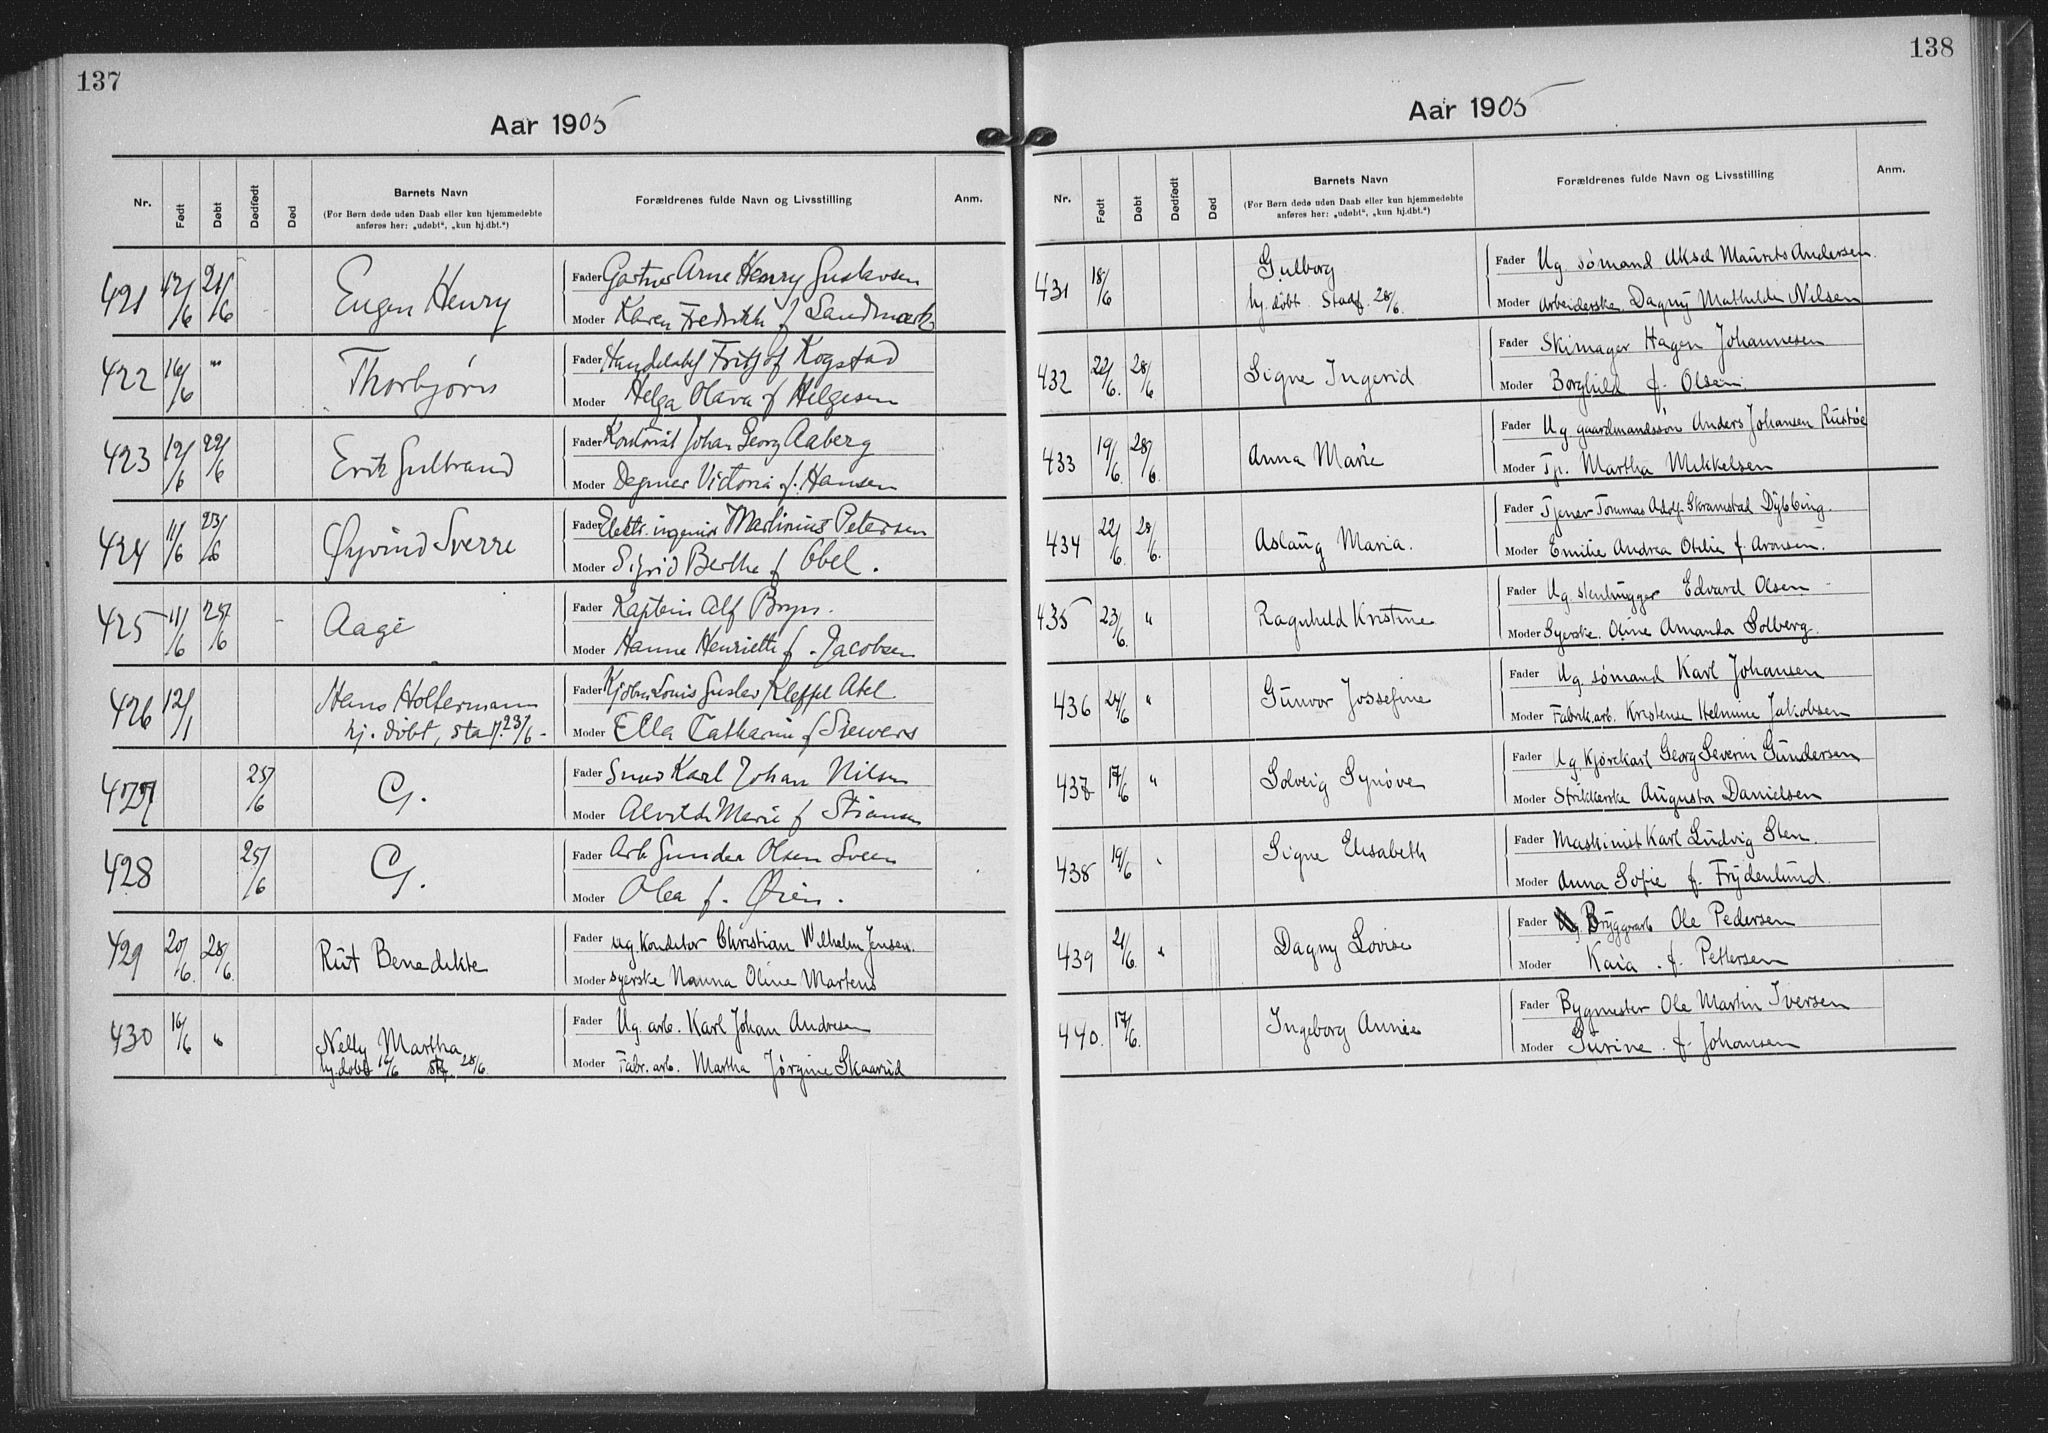 137
Aar 1905
Nr.
Født
Døbt
Dødfødt
Død
Barnets Navn
(For Børn døde uden Daab eller kun hjemmedøbte
anføres her: „udøbt“, „kun hj.dbt.“)
Forældrenes fulde Navn og Livsstilling
Anm.
421 12/6 21/6 Eugen Henry
Fader Gartner Arne Henry Gustavsen
Moder Karen Fredrikke f Landmark
422 16/6 " Thorbjørn
Fader Fritjof Kogstad
Moder Helga Olava f Helgesen
423 12/6 22/6 Erik Gulbrand
Fader Kontorist Johan Georg Aaberg
Moder Dagmar Victoria f. Hansen
424 11/6 23/6 Øyvind Sverre
Fader Elektr. ingeniør Martinius Petersen
Moder Sigrid Berthe f Obel.
425 11/6 25/6 Aage
Fader Kaptein Alf Bryn.
Moder Hanne Henriette f. Jacobsen
426 12/1 Hans Holtermann
hj. døbt, staf. 23/6 -
Fader Louis Gustav Kleffel Abel
Moder Ella Catharina f Siewers
427 25/6 G.
Fader Smed Karl Johan Nilsen
Moder Alvilde Marie f
428 25/6 G.
Fader Arb Gunder Olsen Sveen
Moder Olea f. Øien.
429 20/6. 28/6. Rut Benedikte
Fader Ug. Konditor Christian Wilhelm Jensen.
Moder syerske Nanna Oline Martens
430 16/6 " Nelly Martha
hj. døbt 16/6 stf 28/6.
Fader Ug. arb. Karl Johan Andresen
Moder Fabr. arb. Martha Jørgine Skaarud
138
Aar 1905
Nr.
Født
Døbt
Dødfødt
Død
Barnets Navn
(For Børn døde uden Daab eller kun hjemmedøbte
anføres her: „udøbt“, „kun hj.dbt.“)
Forældrenes fulde Navn og Livsstilling
Anm.
431 18/6 Gulborg
hj. døbt. Stadf. 28/6.
Fader Ug. sømand Aksel Maurits Andersen
Moder Arbeiderske Dagny Mathilde Nilsen
432 22/6. 28/6 Signe Ingerid
Fader Skimager Hagen Johannesen
Moder Borghild f. Olsen.
433 19/6. 28/6. Anna Marie
Fader Ug. gaardmandssøn Anders Johansen Rustøe
Moder Tj. Martha Mikkelsen
434 22/6. 28/6. Aslaug Maria.
Fader Tjener Tommas Adolf Skramstad Dybbing.
Moder Emilie Andrea Otilie f. Aronsen.
435 23/6. " Ragnhild Kristine
Fader Ug. stenhugger Edvard Olsen
Moder Syerske. Oline Amanda Solberg.
436 24/6 " Gunvor Jossefine
Fader Ug. sømand Karl Johansen
Moder Fabrik.arb. Kristense Helmine Jakobsen
437 17/6 " Solveig Synøve
Fader Ug. Kjørekarl Georg Severin Gundersen
Moder Strikkerske Augusta Danielsen
438 19/6 " Signe Elisabeth
Fader Maskinist Karl Ludvig Sten.
Moder Anna Sofie f. Frydenlund.
439 21/6. " Dagny Lovise
Fader Bryggearb Ole Pedersen
Moder Kaia. f. Pettersen
440. 17/6. Ingeborg Annie
Fader Bygmester Ole Martin Iversen
Moder Turine. f. Johansen